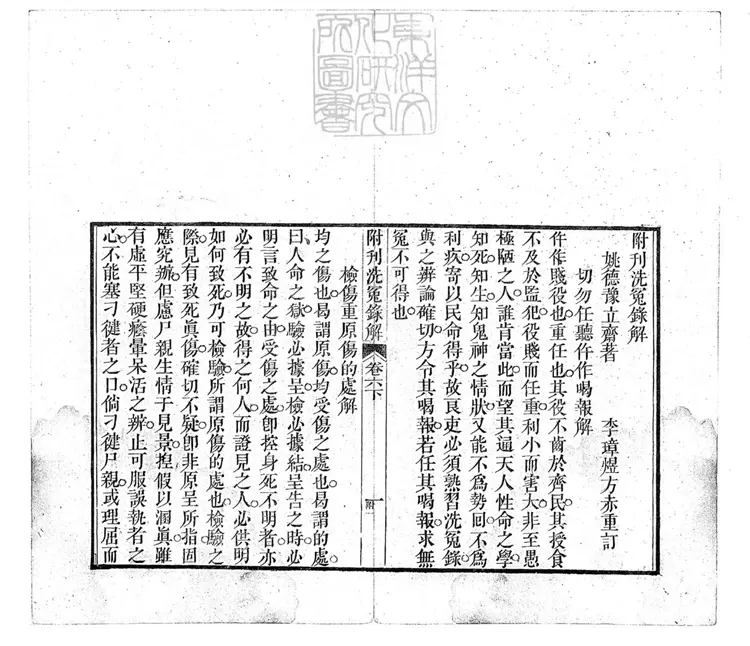 東洋文
化研究
所圖書
附刊洗冤錄解
姚德豫立齋著 李璋煜方赤重訂
切勿任聽仵作喝報解
仵作賤役也重任也其役不齒於齊民其授食
不及於監犯役賤而任重利小而害大非至愚
極陋之人誰肯當此而望其通天人性命之學
知死知生知鬼神之情狀又能不為勢回不為
利疚寄以民命得乎故良吏必須熟習洗冤錄
與之辨論確切方令其喝報若任其喝報求無
冤不可得也
附刊洗冤錄解 卷六下 一 附
檢傷重原傷的處解
均之傷也曷謂原傷均受傷之處也曷謂的處
曰人命之獄驗必據呈檢必據結呈告之時必
明言致命之由受傷之處卽控身死不明者亦
必有不明之故得之何人而證見之人必供明
如何致死乃可檢驗所謂原傷的處也檢驗之
際見有致死眞傷確切不疑卽非原呈所指固
應究辦但慮尸親生情于見景揑假以溷眞雖
有虛平堅硬癊暈呆活之辨止可服誤執者之
心不能塞刁徤者之口倘刁徤尸親或理屈而